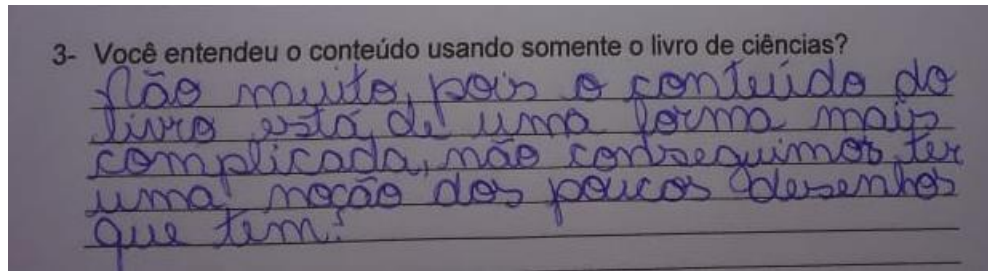 3- Você entendeu o conteúdo usando somente o livro de ciências?
Não muito, pois o conteúdo do
livro está de uma forma mais
complicada, não conseguimos ter
uma noção dos poucos desenhos
que tem.